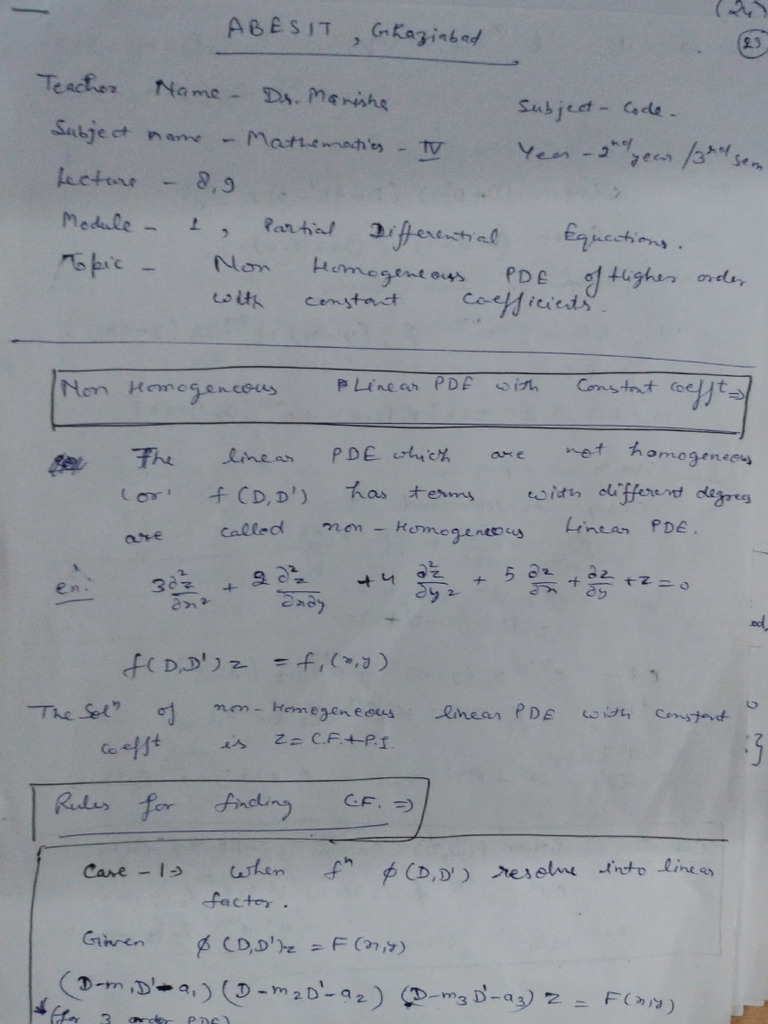 (24)
23
ABESIT, Ghaziabad
Teacher Name - Dr. Manisha Subject - Code -
Subject name - Mathematics - IV Year - 2nd year / 3rd sem
Lecture - 8,9
Module - 1, Partial Differential Equations.
Topic - Non Homogeneous PDE of Higher order
with constant coefficients.
Non Homogeneous Linear PDE with Constant coefft ⇒
The linear PDE which are not homogeneous
(or) f(D,D') has terms with different degrees
are called non-Homogeneous Linear PDE.
en: 3 ∂²z/∂x² + 2 ∂²z/∂x∂y + 4 ∂²z/∂y² + 5 ∂z/∂x + ∂z/∂y + z = 0
f(D,D')z = f₁(x,y)
The Solⁿ of non-Homogeneous linear PDE with constant
coefft is Z = C.F. + P.I.
Rules for finding C.F. ⇒
Case - 1 ⇒ When fⁿ ϕ(D,D') resolve into linear
factor.
Given ϕ(D,D')z = F(x,y)
(D-m₁D'-a₁) (D-m₂D'-a₂) (D-m₃D'-a₃) Z = F(x,y)
(for 3 order PDE)